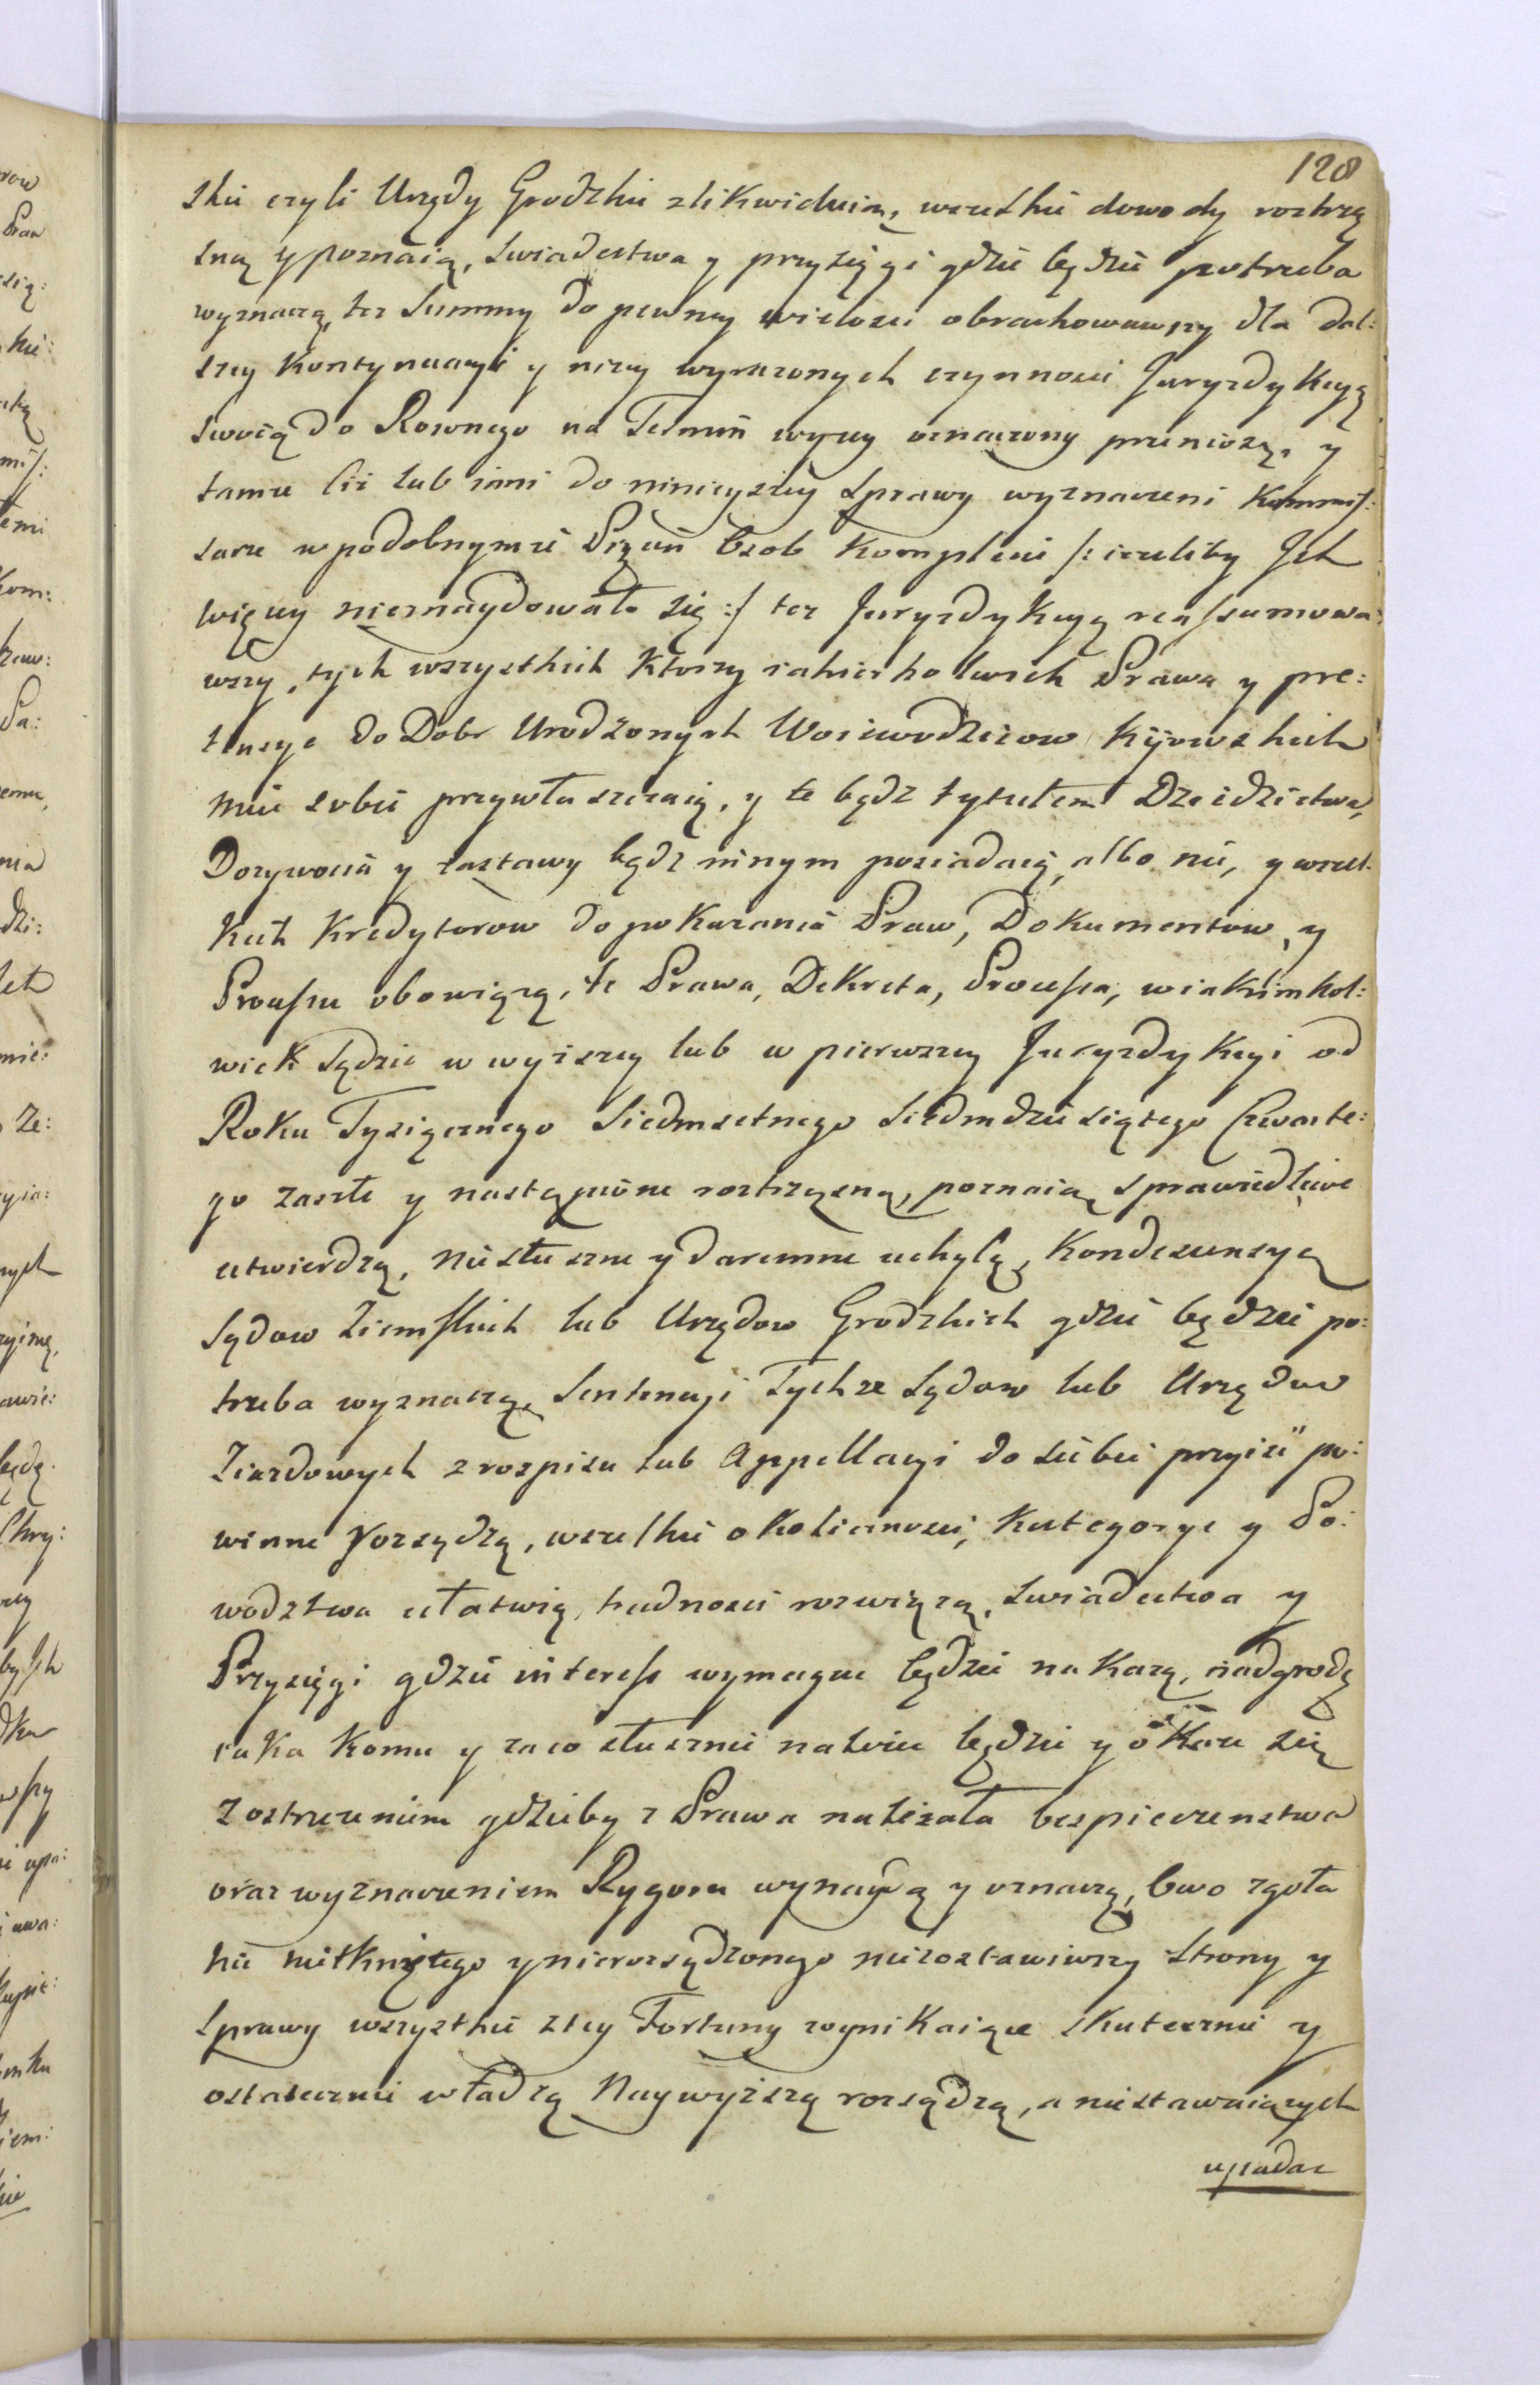 128
skie czyli Urzędy Grodzkie zlikwiduią, wszelkie dowody roztrzą
sną y poznaią, swiadectwa y przysięgi gdzie będzie potrzeba
wyznaczą, tez Summy do pewney wielosci obrachowawszy dla dal:
szey Kontynuacyi y nizey wyrazonych czynnosci Juryzdykcyą
swoią do Rownego na Termin wyzey oznaczony przeniosą, y
tamze Ciz lub inni do ninieyszey Sprawy wyznaczeni Kommis:
sarze w podobnymze Pięciu Osob Komplecie /: iezeliby Ich
więcey nieznaydowało się :/ tez Juryzdykcyą reassumowa:
wszy, tych wszystkich Ktorzy iakieżkolwiek Prawa y pre:
tensye do Dobr Urodzonych Woiewodzicow Kijowskich
mieć sobie przywłaszczaią, y te bądz tytułem Dziedzictwa,
Dozywocia y zastawy bądz innym posiadaią, albo nie, y wszel:
kich Kredytorow do pokazania Praw, Dokumentow, y
Processu obowiązą, te Prawa, Dekreta, Processa, w iakimkol:
wiek Sądzie w wyższey lub w pierwszey Juryzdykcyi od
Roku Tysiącznego Siedmsetnego Siedmdziesiątego Czwarte:
go zaszłe y nastąpione roztrząsną, poznaią sprawiedliwe
utwierdzą, niesłuszne y daremne uchylą, Kondescensyą
Sądow Ziemskich lub Urzędow Grodzkich gdzie będzie po:
trzeba wyznaczą, Sentencyi Tychze Sądow lub Urzędow
Ziazdowych z rozpisu lub Appellacyi do siebie przyiść po:
winne rozsądzą, wszelkie okolicznosci, Kategorye y Po:
wodztwa ułatwią, trudnosci rozwiążą, Swiadectwa y
Przysięgi gdzie interess wymagac będzie nakażą, nadgrodę
iaka komu y za co słusznie należeć będzie y o Karę się
z ostrzeżeniem gdzieby z Prawa należała bezpieczenstwa
oraz wyznaczeniem Rygoru wynaydą y oznaczą, Owo zgoła
nic nietkniętego y nierozsądzonego niezostawiwszy Strony y
Sprawy wszystkie z tey Fortuny wynikaiące skutecznie y
ostatecznie władzą Naywyższą rozsądzą, a niestawaiących
upadac